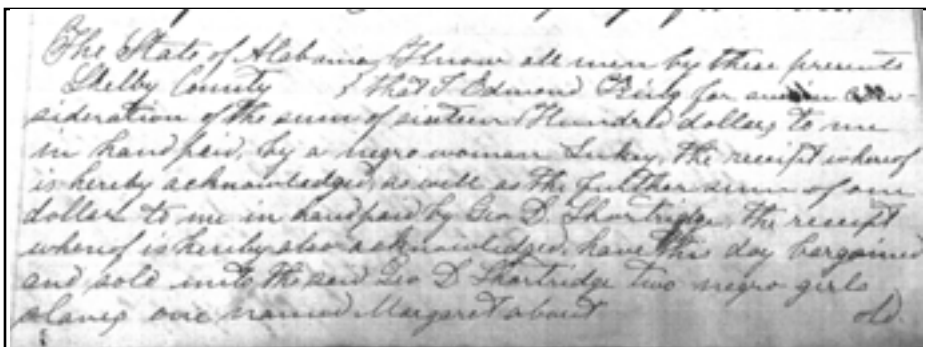 The State of Alabama } Know all men by these presents
Shelby County } that I Edmond King for and in con-
sideration of the sum of sixteen Hundred dollars to me
in hand paid, by a negro woman Sukey, the receipt whereof
is hereby acknowledged, as well as the further sum of one
dollar to me in hand paid by Geo D. Shortridge, the receipt
whereof is hereby also acknowledged, have this day bargained
and sold unto the said Geo D Shortridge two negro girls
slaves one named Margaret about old.